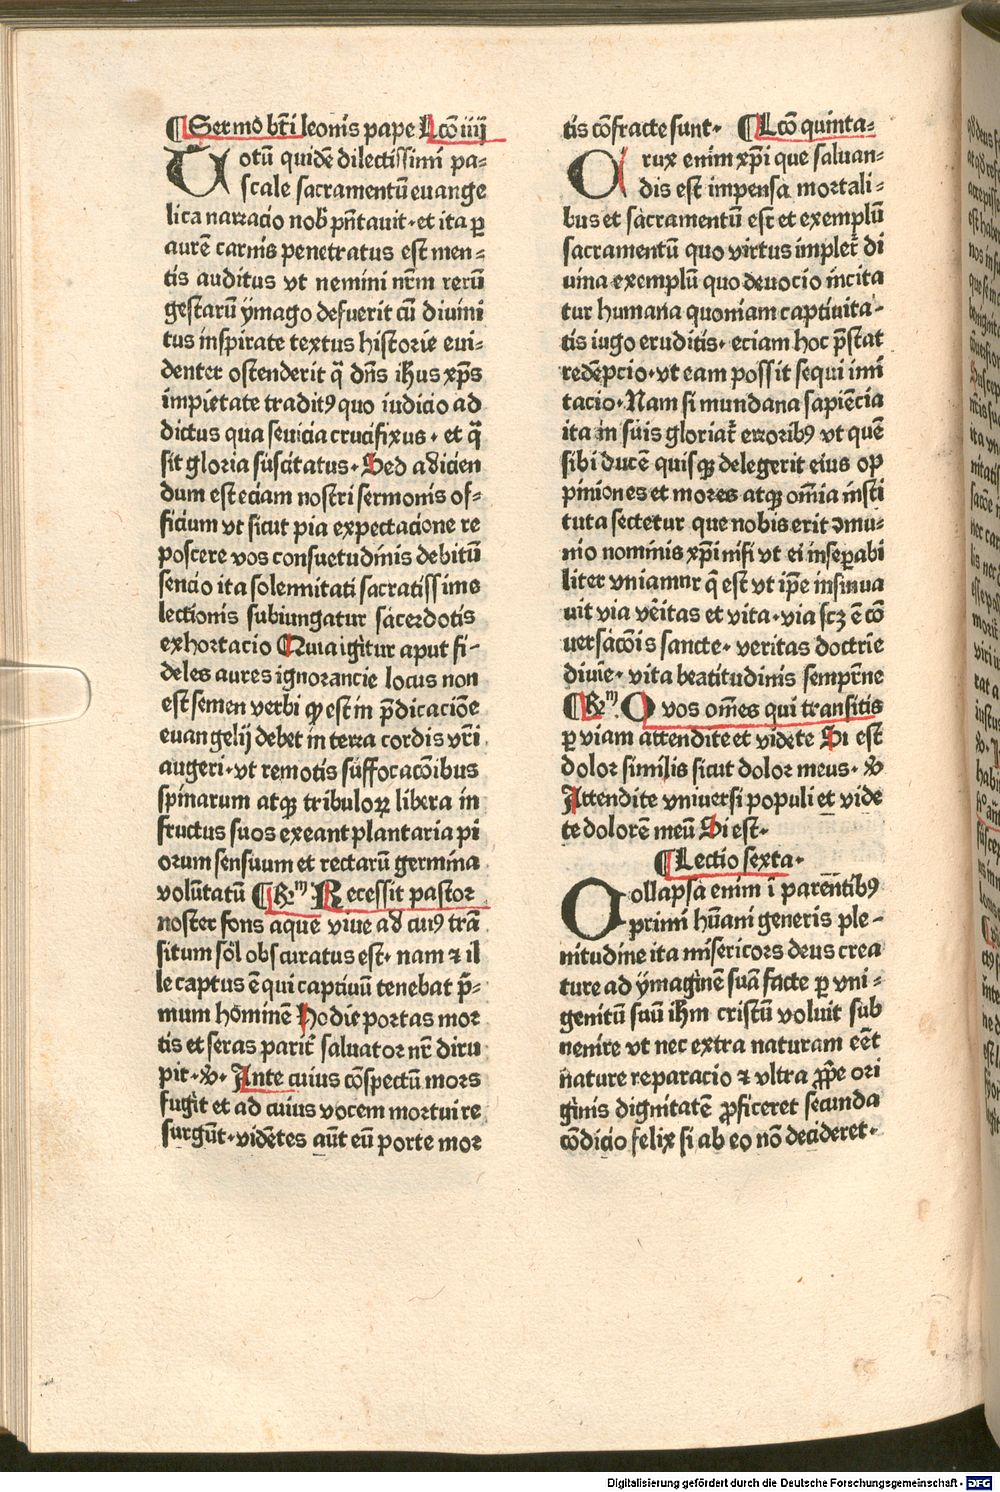 ¶ Sermo bt̄i leonis pape Lcō iiij
Totū quidē dilectissimi pa=
scale sacramentū euange
lica narracio nob̄ pn̄tauit· et ita ꝑ
aurē carnis penetratus est men=
tis auditus vt nemini nr̄m rerū
gestarū ẏmago defuerit cū diuini
tus inspirate textus historie eui=
denter ostenderit q̄ dn̄s ih̄us xp̄s
impietate traditꝰ quo iudicio ad
dictus qua seuicia crucifixus· et q̄
sit gloria suscitatus· Sed adicien
dum est eciam nostri sermonis of=
ficium vt sicut pia expectacione re
poscere vos consuetudinis debitū
sencio ita solennitati sacratissime
lectionis subiungatur sacerdotis
exhortacio Quia igitur aput fi=
deles aures ignorancie locus non
est semen verbi qꝫ est in p̄dicaciōe
euangelij debet in terra cordis vr̄i
augeri· vt remotis suffocacōibus
spinarum atqꝫ tribuloꝝ libera in
fructus suos exeant plantaria pi
orum sensuum et rectarū germina
volūtatū ¶ R̄m̄ Recessit pastor
noster fons aque viue ad cuiꝰ trā
situm sol obscuratus est· nam ⁊ il
le captus ē qui captiuū tenebat p̄=
mum hominē Hodie portas mor
tis et seras parit̄ saluator nr̄ diru
pit· v̄· Ante cuius cōspectū mors
fugit et ad cuius vocem mortui re
surgūt· vidētes aūt eū porte mor
tis cōfracte sunt· ¶ Lcō quinta=
Crux enim xp̄i que saluan=
dis est impensa mortali=
bus et sacramentū est et exemplū
sacramentū quo virtus implet̄ di
uina exemplū quo deuocio incita
tur humana quoniam captiuita=
tis iugo erutis· eciam hoc p̄stat
redēpcio· vt eam possit sequi imi
tacio· Nam si mundana sapiēcia
ita in suis gloriat̄ erroribꝰ vt quē
sibi ducē quisqꝫ delegerit eius op
piniones et mores atqꝫ om̄ia insti
tuta sectetur que nobis erit ꝯmu=
nio nominis xp̄i nisi vt ei insep̄abi
liter vniamur q̄ est vt ip̄e insinua
uit via vēitas et vita· via scꝫ ē cō
uersacōis sancte· veritas doctrie
diuie· vita beatitudinis semp̄ne
¶ R̄m̄. O vos om̄es qui transitis
ꝑ viam attendite et videte Si est
dolor similis sicut dolor meus· v̄
Attendite vniuersi populi et vide
te dolorē meū Si est·
¶ Lectio sexta·
Collapsa enim ī parentibꝰ
primi hūani generis ple=
nitudine ita misericors deus crea
ture ad ẏmaginē suā facte ꝑ vni=
genitū suū ih̄m cristū voluit sub
uenire vt nec extra naturam eēt
nature reparacio ⁊ vltra ꝓpe ori
ginis dignitatē ꝓficeret secunda
cōdicio felix si ab eo nō decideret·
Digitalisierung gefördert durch die Deutsche Forschungsgemeinschaft - DFG